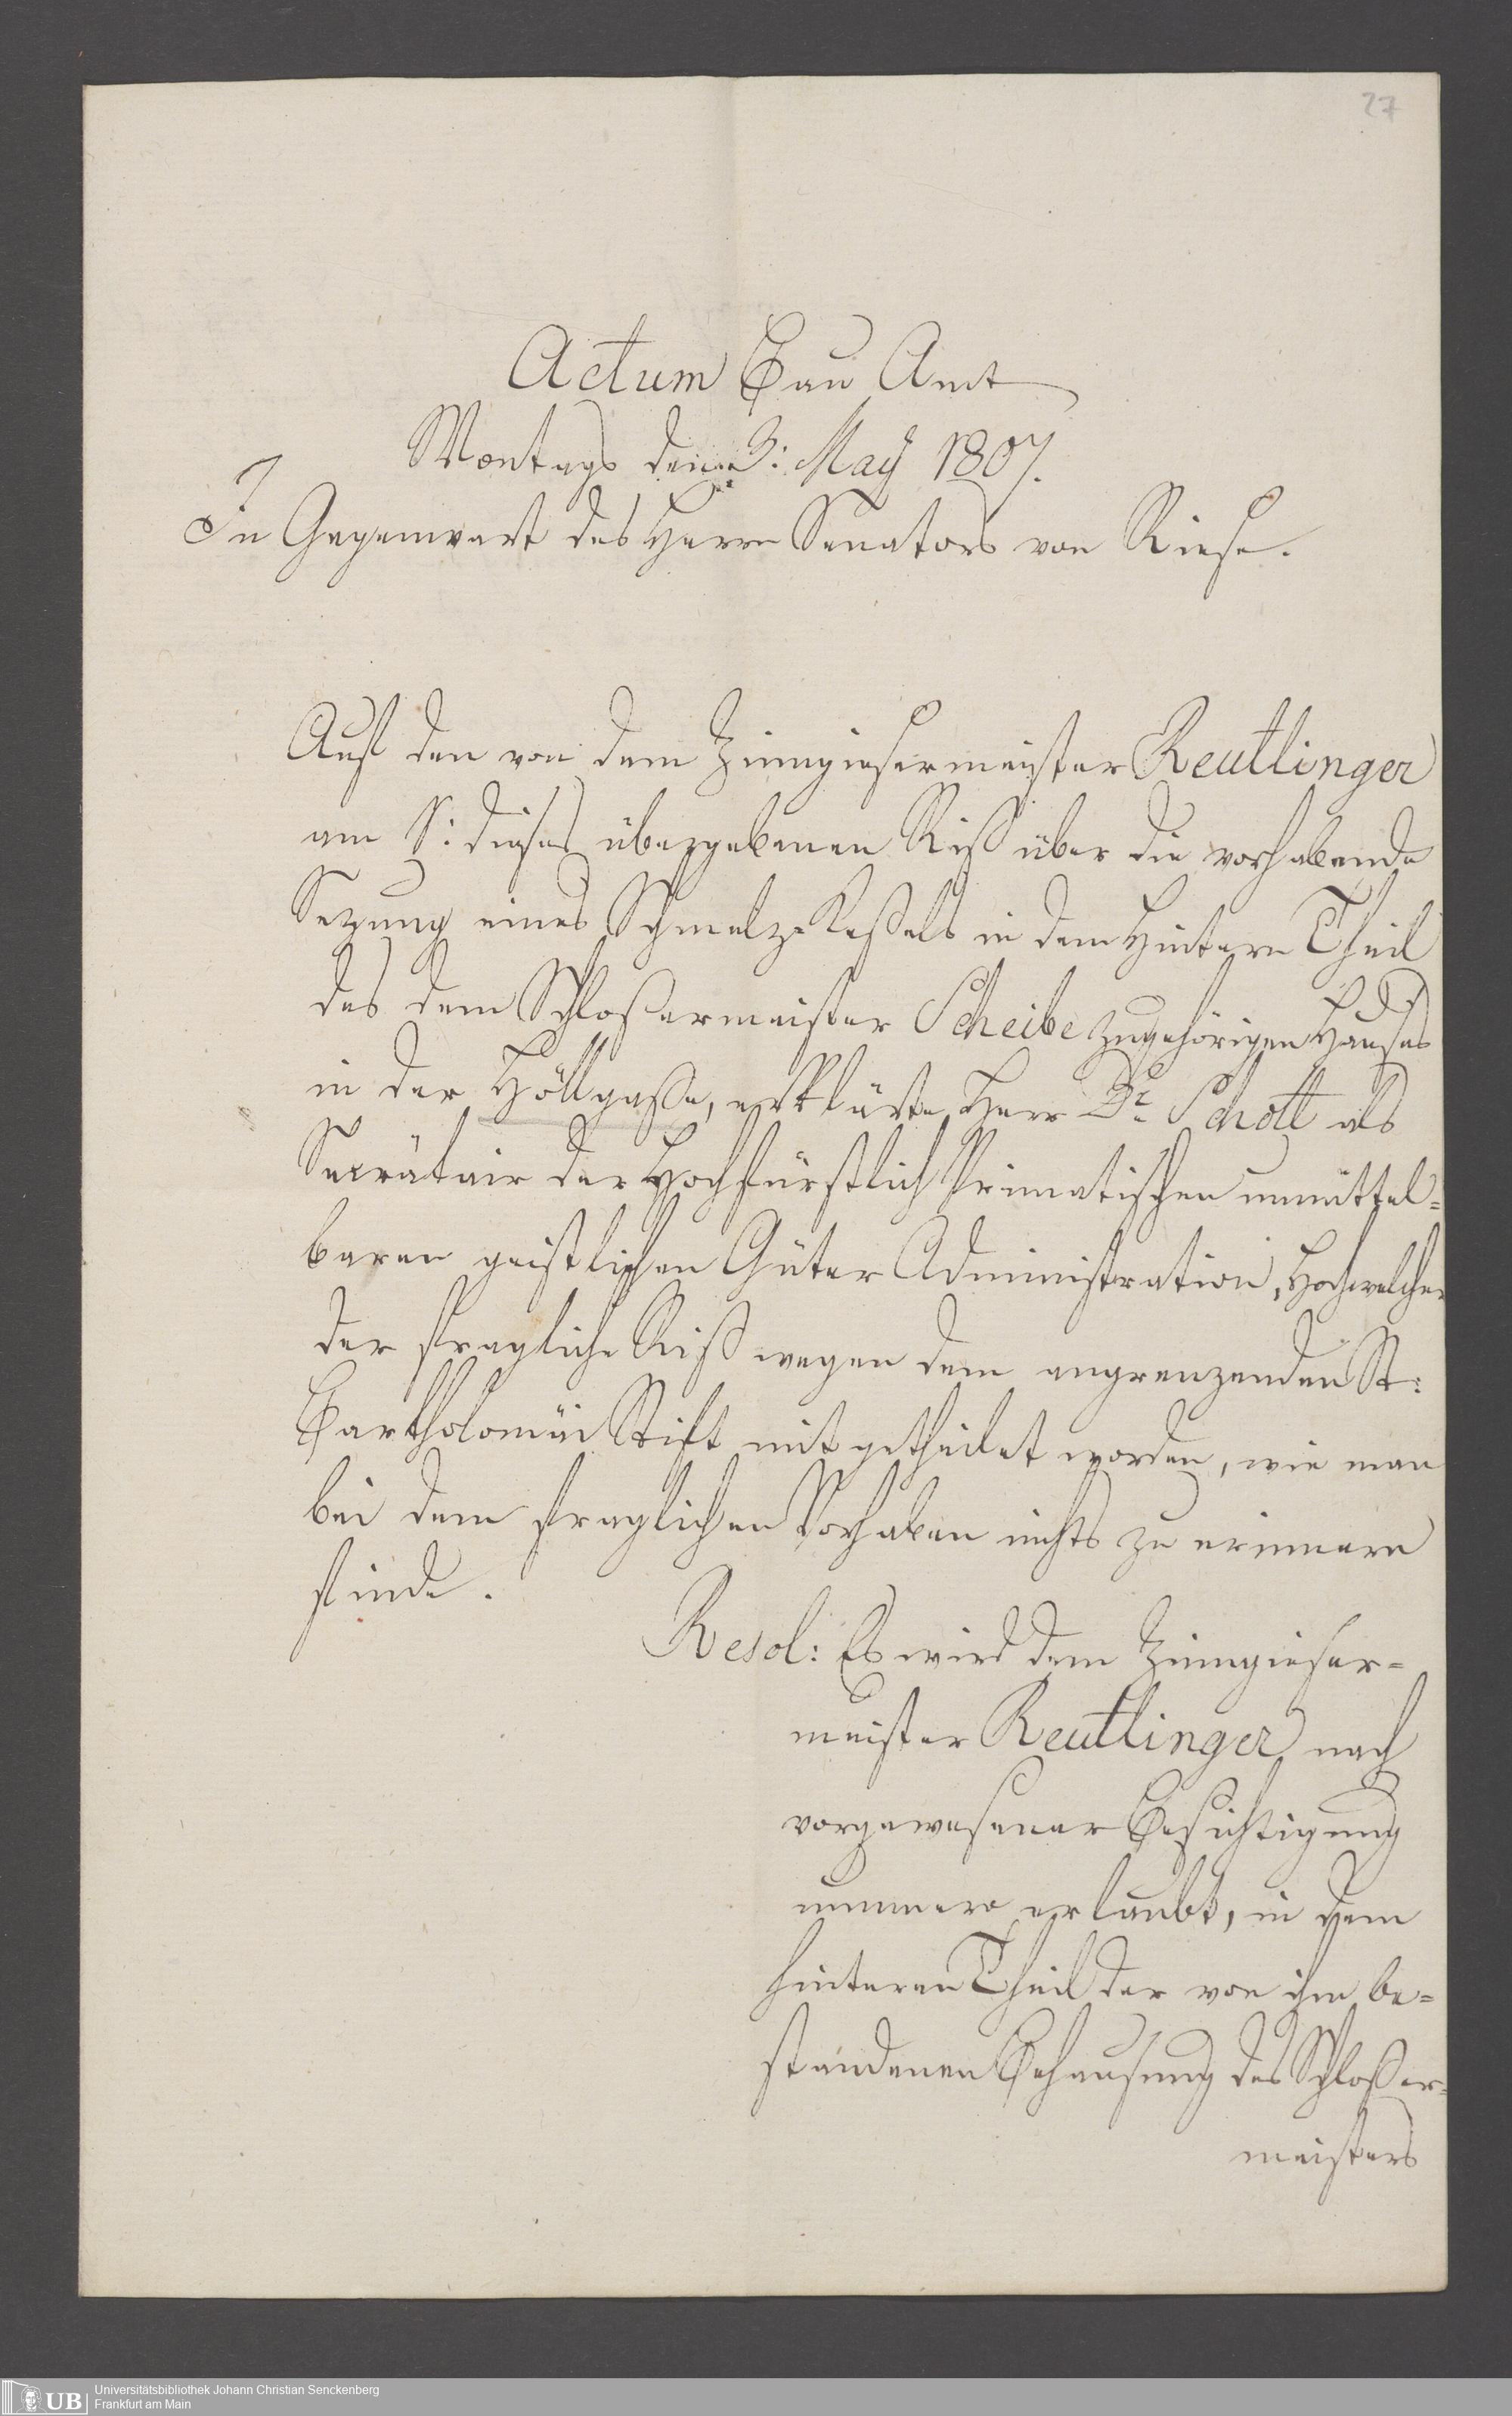 27
Actum Bau Amt
Montags den 3: Maÿ 1807.
In Gegenwart des Herrn Senators von Riese.
Auf den von dem Zinngiesermeister Reutlinger
am dieses übergebenen Riß über die vorhabende
Sezung eines Schmelz-Keßels in dem Hintern Theil
des dem Schloßermeister Scheibe zugehörigen Hauses
in der Höllgasse, erklärte Herr Dr. Schott als
Secrätair der Hochfürstlich Primatischen unmittel=
baren geistlichen Güter Administration, Hochwelcher
der fragliche Riß wegen dem angrenzenden St:
Bartholomäi Stift mit getheilet worden, wie man
bei dem fraglichen Vorhaben nichts zu erinnern
finde.
Resol: Es wird dem Zinngieser=
meister Reutlinger nach
vorgewesener Besichtigung
nunmero erlaubt, in dem
hinteren Theil der von ihm be=
standenen Behausung des Schloßer=
meisters
UB Universitätsbibliothek Johann Christian Senckenberg
Frankfurt am Main